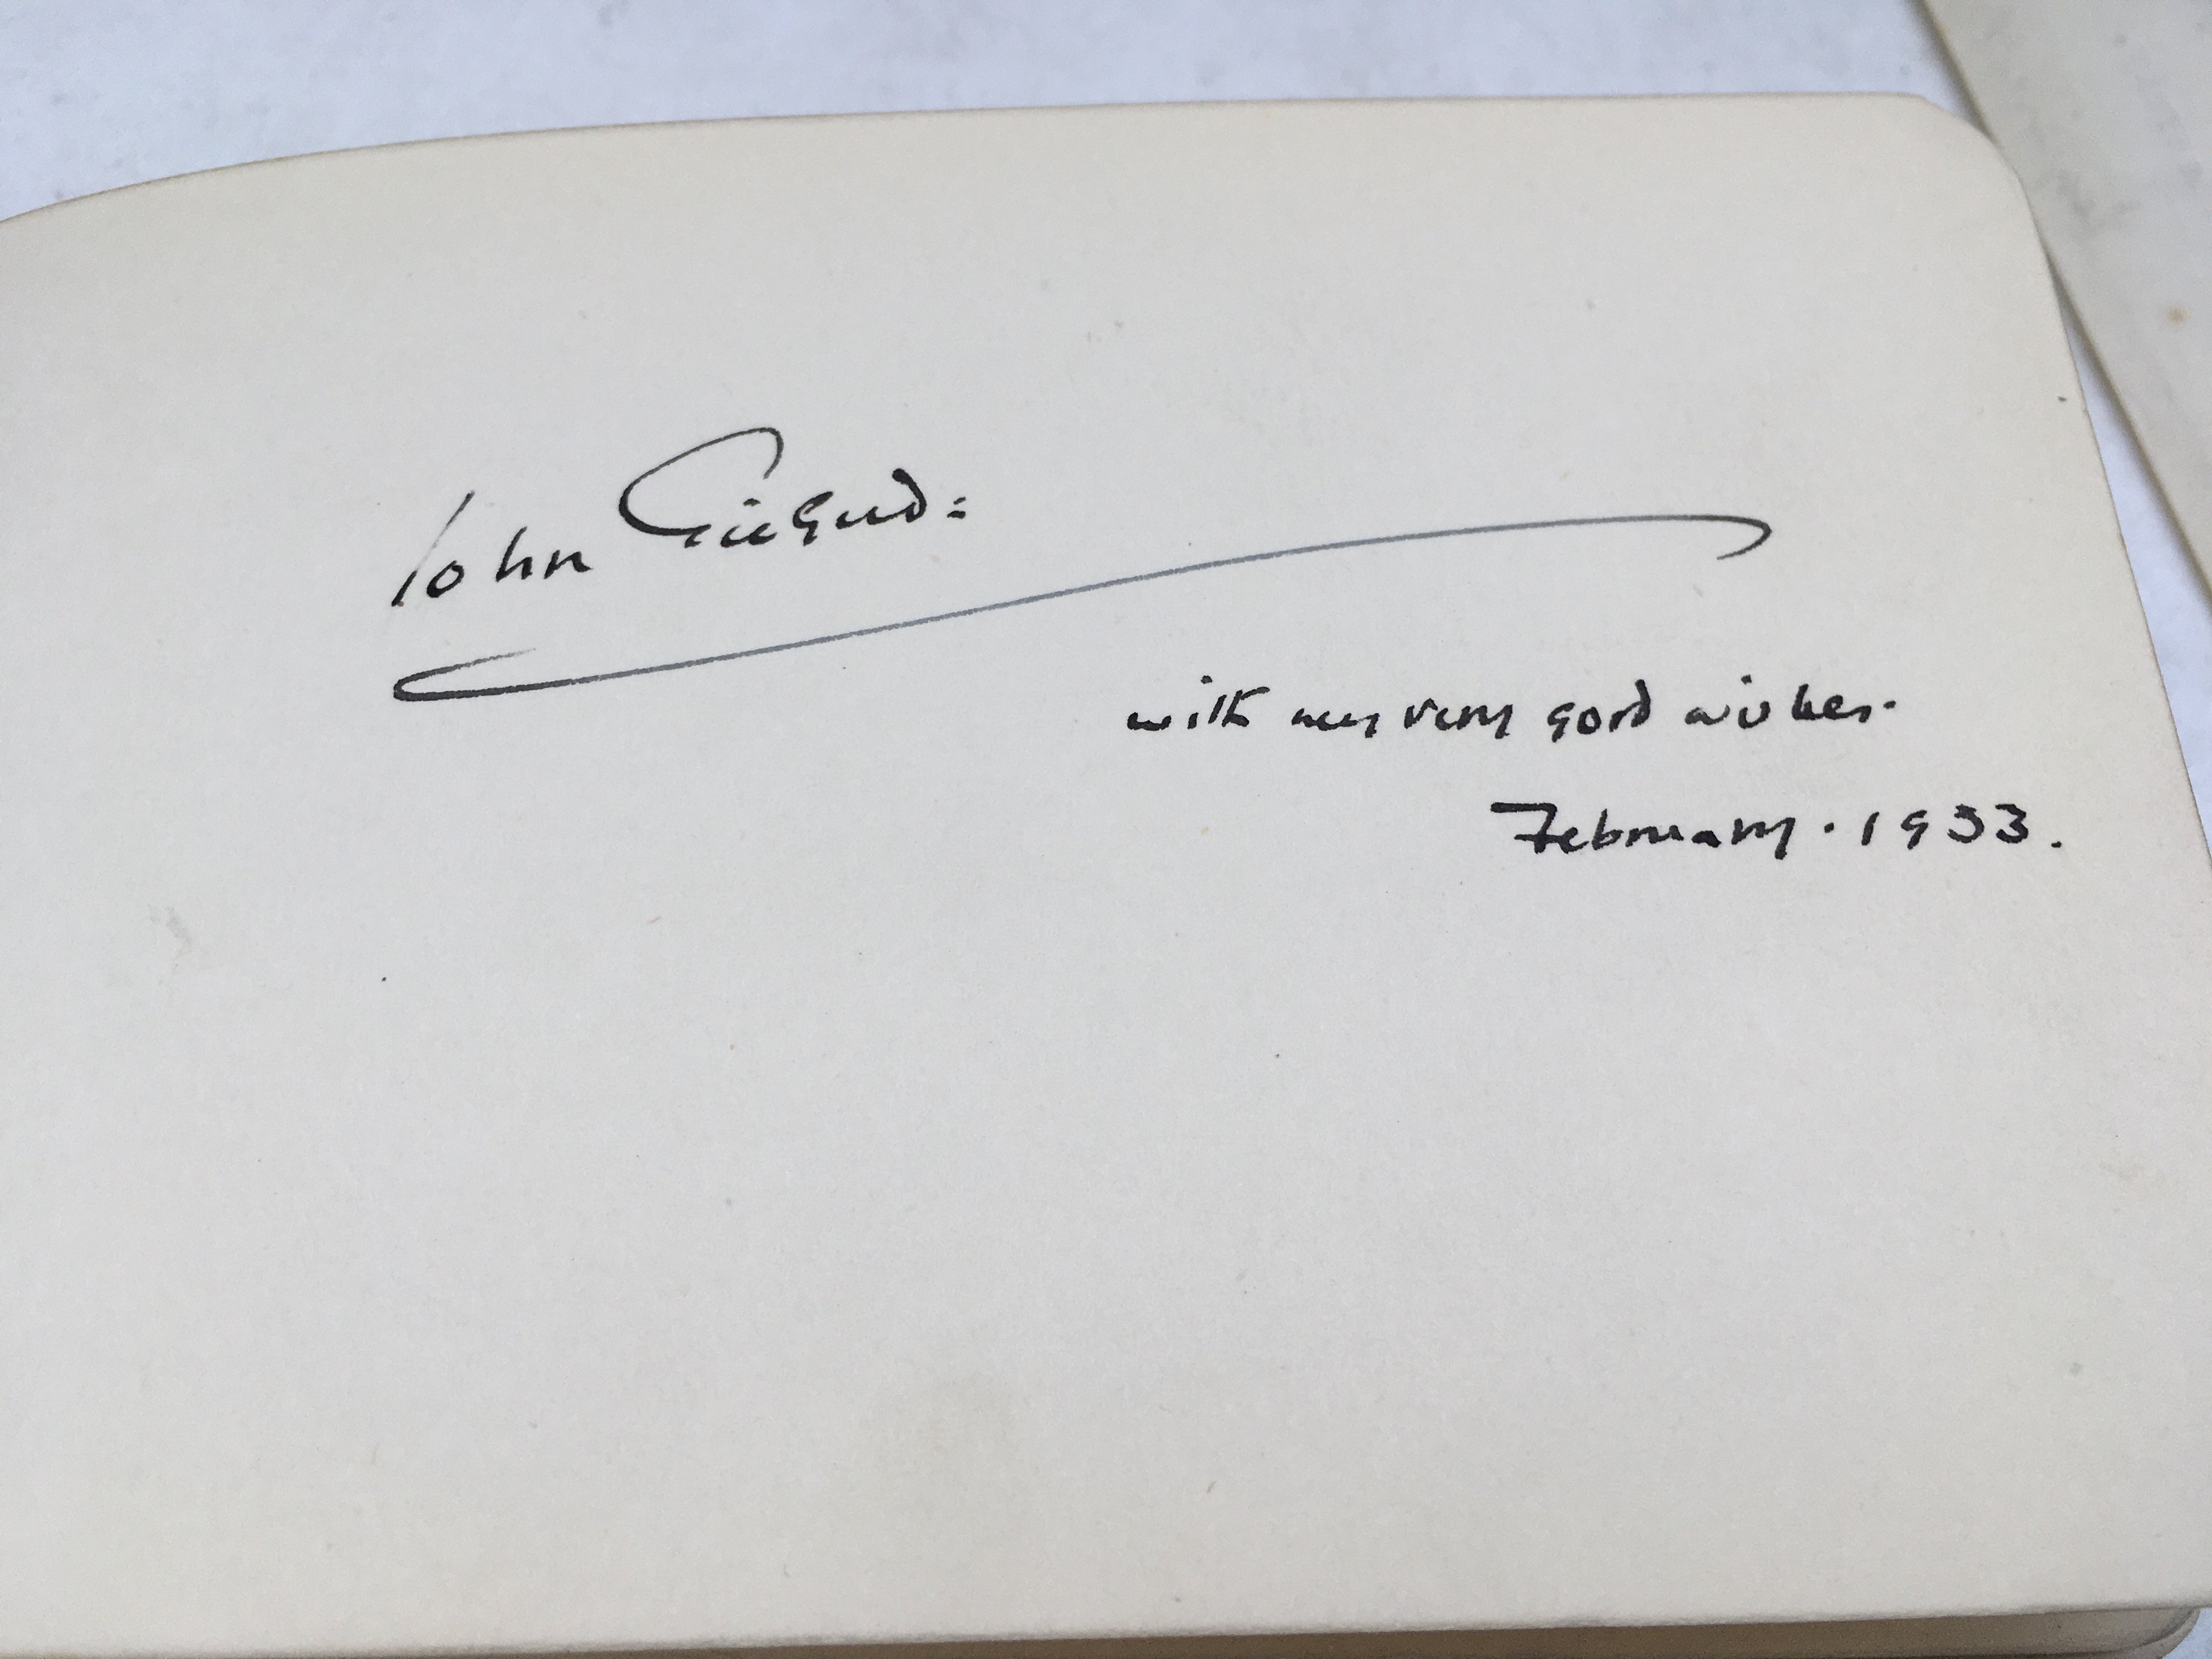 John Gielgud:
with my very good wishes.
February. 1933.